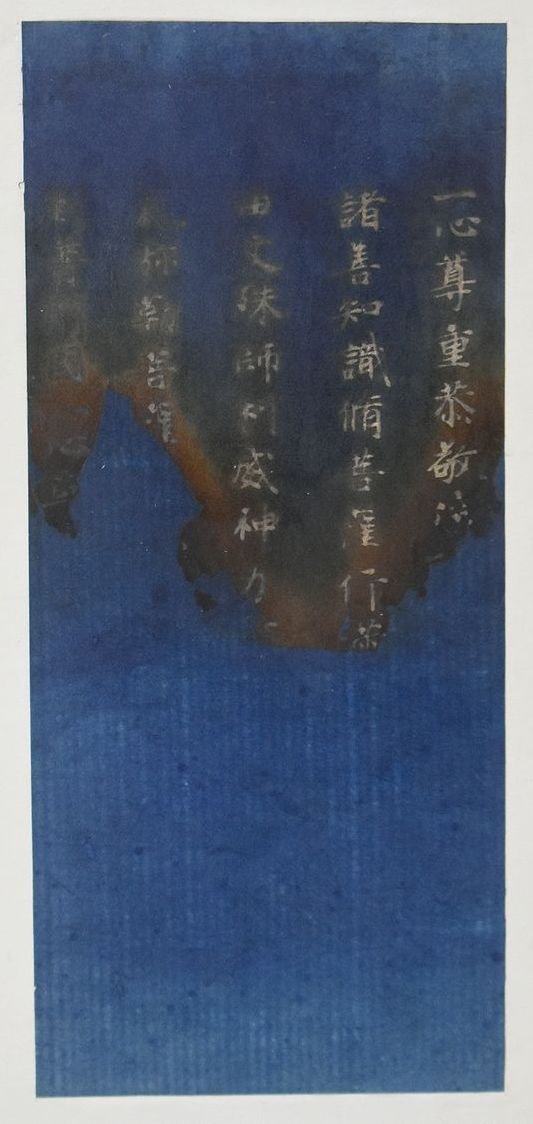 一心尊重恭敬法
諸善知識脩菩薩行
由文殊師利威神力
弥勒菩薩
普門國一心